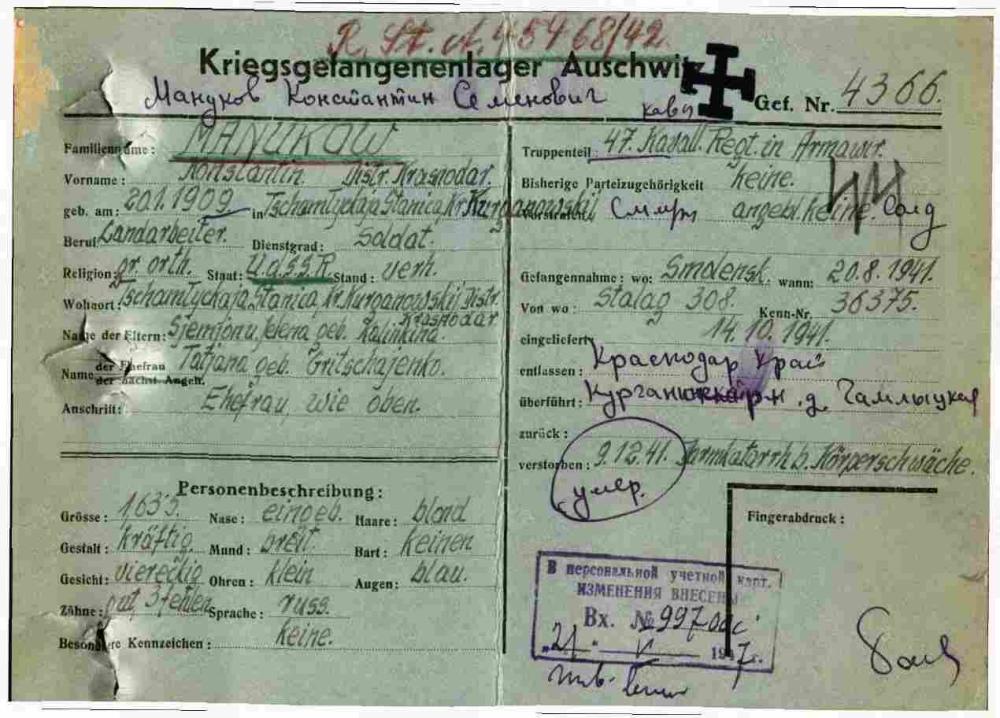 R. St. A. 45468/42
Kriegsgefangenenlager Auschwitz
Гef. Nr. 4366.
Мануков Константин Семенович кавд
Familienname: MANUKOW
Vorname: Konstantin Distr. Krasnodar.
geb. am: 20.1.1909 in Tschamlyckaja Stanica, Kr. Kurganowskii
Beruf: Landarbeiter. Dienstgrad: Soldat.
Religion: gr. orth. Staat: U.d.S.S.R. Stand: verh.
Wohnort: Tschamlyckaja Stanica, Kr. Kurganowskii Distr. Krasnodar
Name der Eltern: Sjemjon u. Jelena geb. Kalinkina.
Name der Ehefrau Tatjana geb. Gritschajenko.
der nächst. Angeh.
Anschrift: Ehefrau, wie oben.
Personenbeschreibung:
Grösse: 163,5. Nase: eingeb. Haare: blond
Gestalt: kräftig Mund: breit. Bart: keinen
Gesicht: viereckig Ohren: klein Augen: blau.
Zähne: gut, 3 fehlen Sprache: russ.
Besondere Kennzeichen: keine.
Truppenteil: 47. Kavall. Regt. in Armawir.
Bisherige Parteizugehörigkeit keine.
Vorstrafen angebl. keine. Солд
Gefangennahme: wo: Smolensk. wann: 20.8.1941.
Von wo: Stalag 308. Kenn-Nr. 36375.
eingeliefert 14.10.1941.
entlassen: Краснодар Край
überführt: д. Чамлыцкая
zurück:
verstorben: 9.12.41. Darmkatarrh b. Körperschwäche.
умер.
Fingerabdruck:
В персональной учетной карт.
ИЗМЕНЕНИЯ ВНЕСЕНЫ
Вх. № 997
"21" V 1947г.